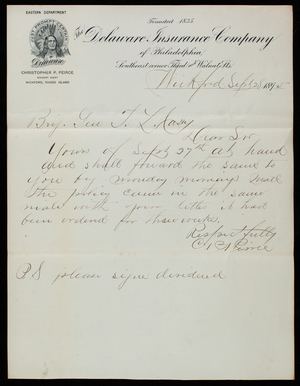 EASTERN DEPARTMENT
Founded 1835
The Delaware Insurance Company
of Philadelphia,
Southeast corner Third and Walnut Sts.
Delaware
CHRISTOPHER P. PEIRCE
WICKFORD, RHODE ISLAND
Wickford Sept 28 189
Brig. Gen T. L. Casey
Dear Sir
Yours of Sept 27th at hand
and shall forward the same to
you by Monday morning mail
the policy came in the same
mail with your letter it had
been ordered for these works.
Respectfully
C P Peirce
P.S. please signe dividend